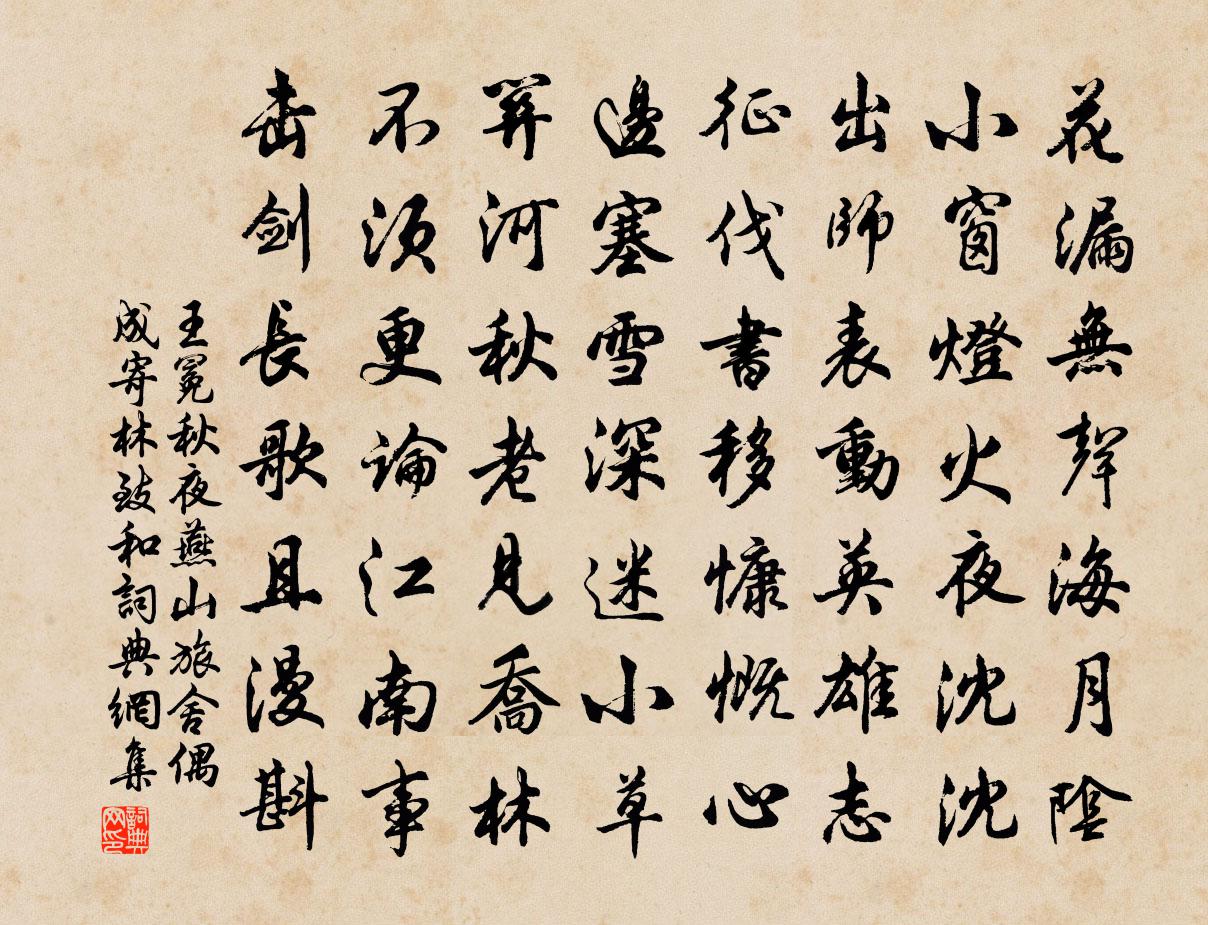 花漏無聲海月陰
小窗燈火夜沈沈
出師表動英雄志
征伐書移慷慨心
邊塞雪深迷小草
關河秋老見喬林
不須更論江南事
击劍長歌且漫斟
王冕秋夜燕山旅舍偶
成寄林致和詞典網集
詞典
网印